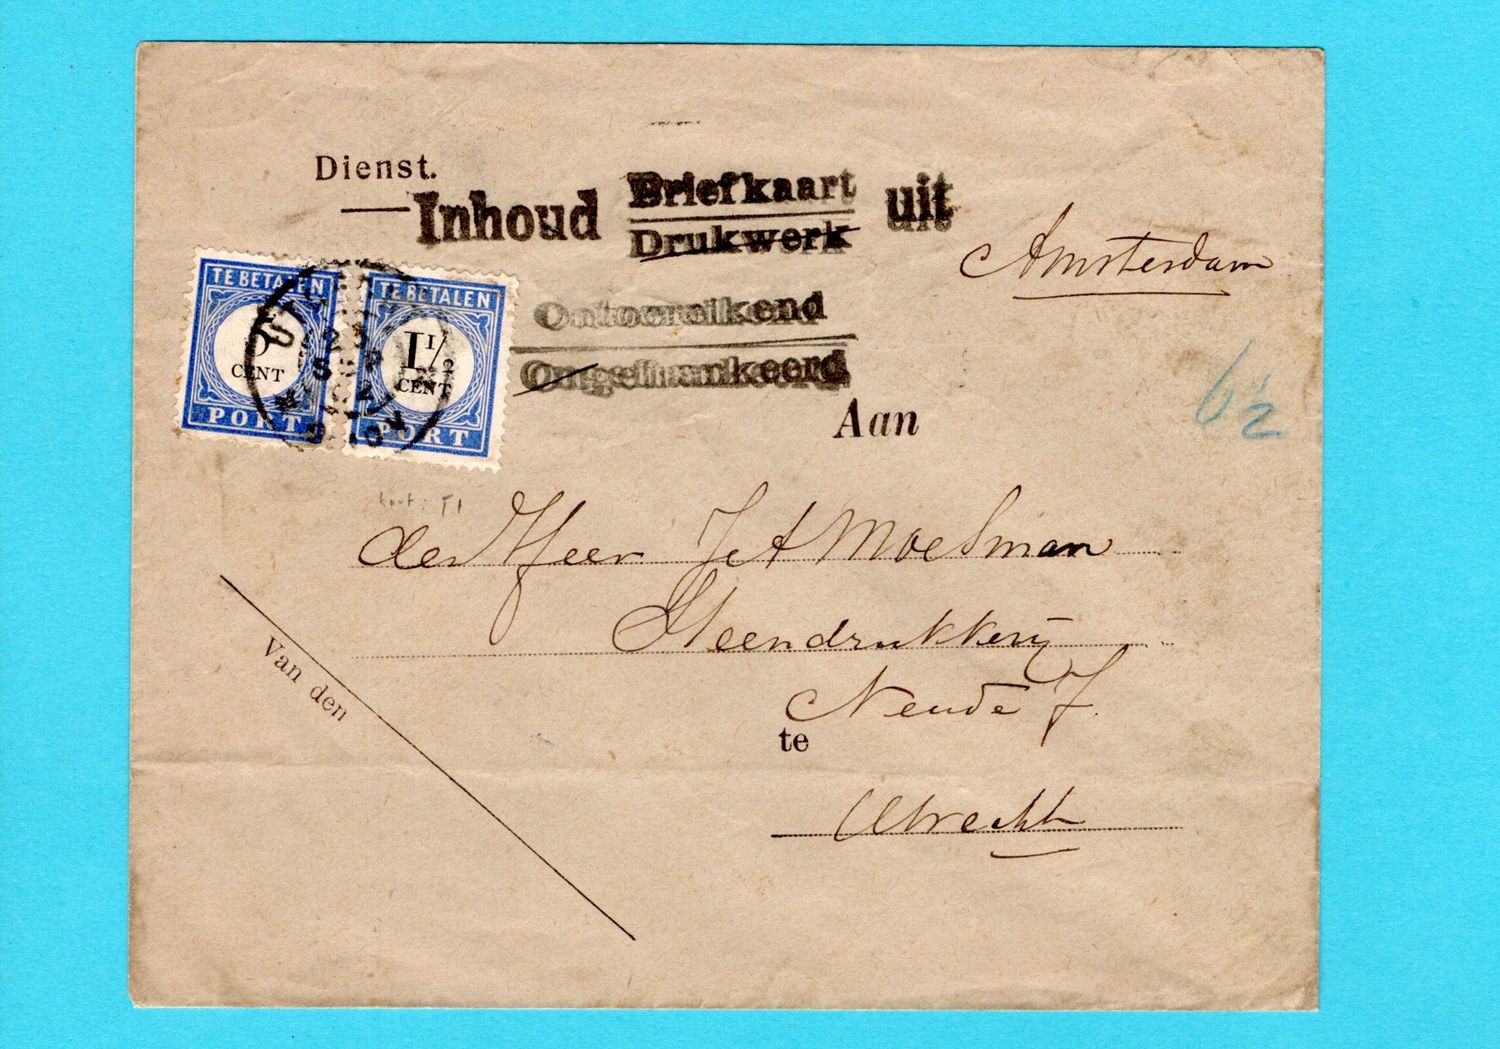 Dienst.
Inhoud Briefkaart uit
Drukwerk
Amsterdam
Ontoereikend
Ongefrankeerd
TE BETALEN
5
CENT
PORT
TE BETALEN
1 1/2
CENT
PORT
UTRECHT
23
SEP
6 1/2
Aan
den Heer J A Moesman
Steendrukkerij
Neude 7.
te
Utrecht
Van den